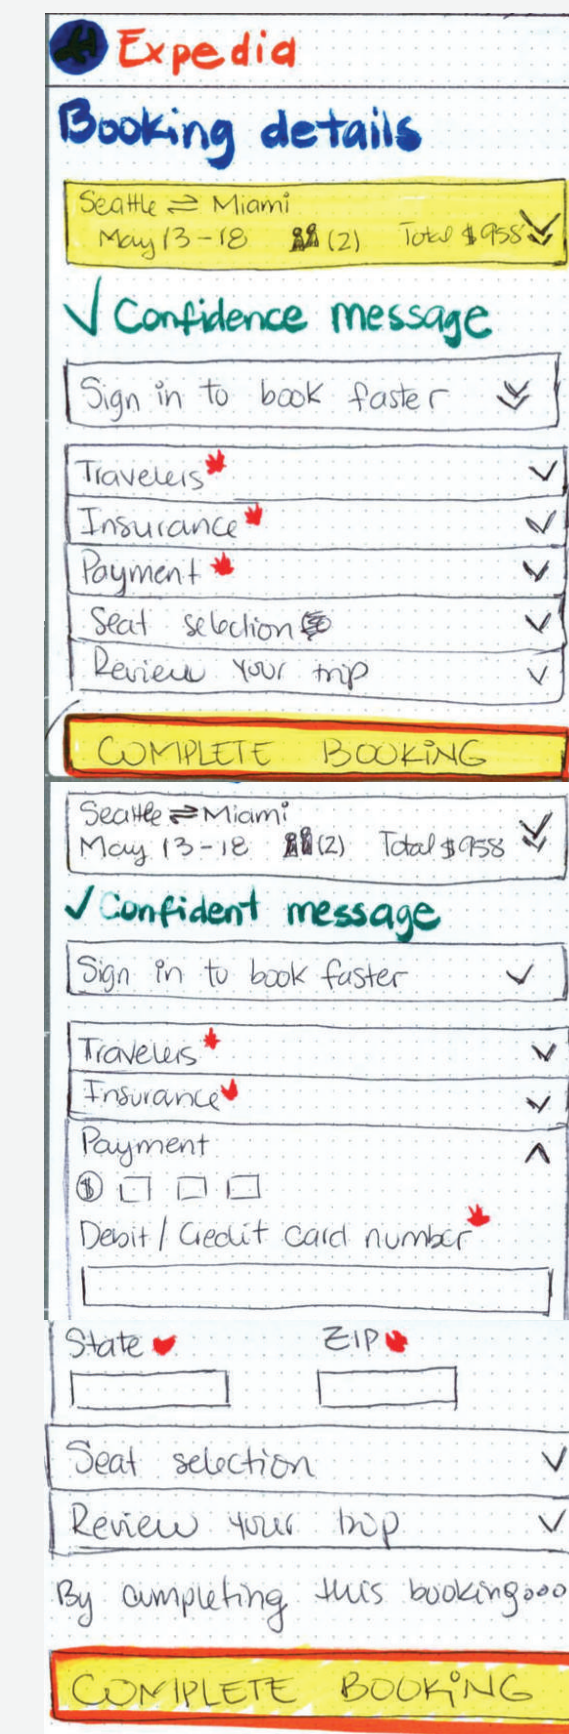 Expedia
Booking details
Seattle ⇌ Miami
May 13-18 (2) Total $958
✓ Confidence message
Sign in to book faster
Travelers*
Insurance*
Payment*
Seat selection
Review your trip
COMPLETE BOOKING
Seattle ⇌ Miami
May 13-18 (2) Total $958
✓ Confident message
Sign in to book faster
Travelers*
Insurance*
Payment
$
Debit / Credit card number*
State* ZIP*
Seat selection
Review your trip
By completing this booking...
COMPLETE BOOKING